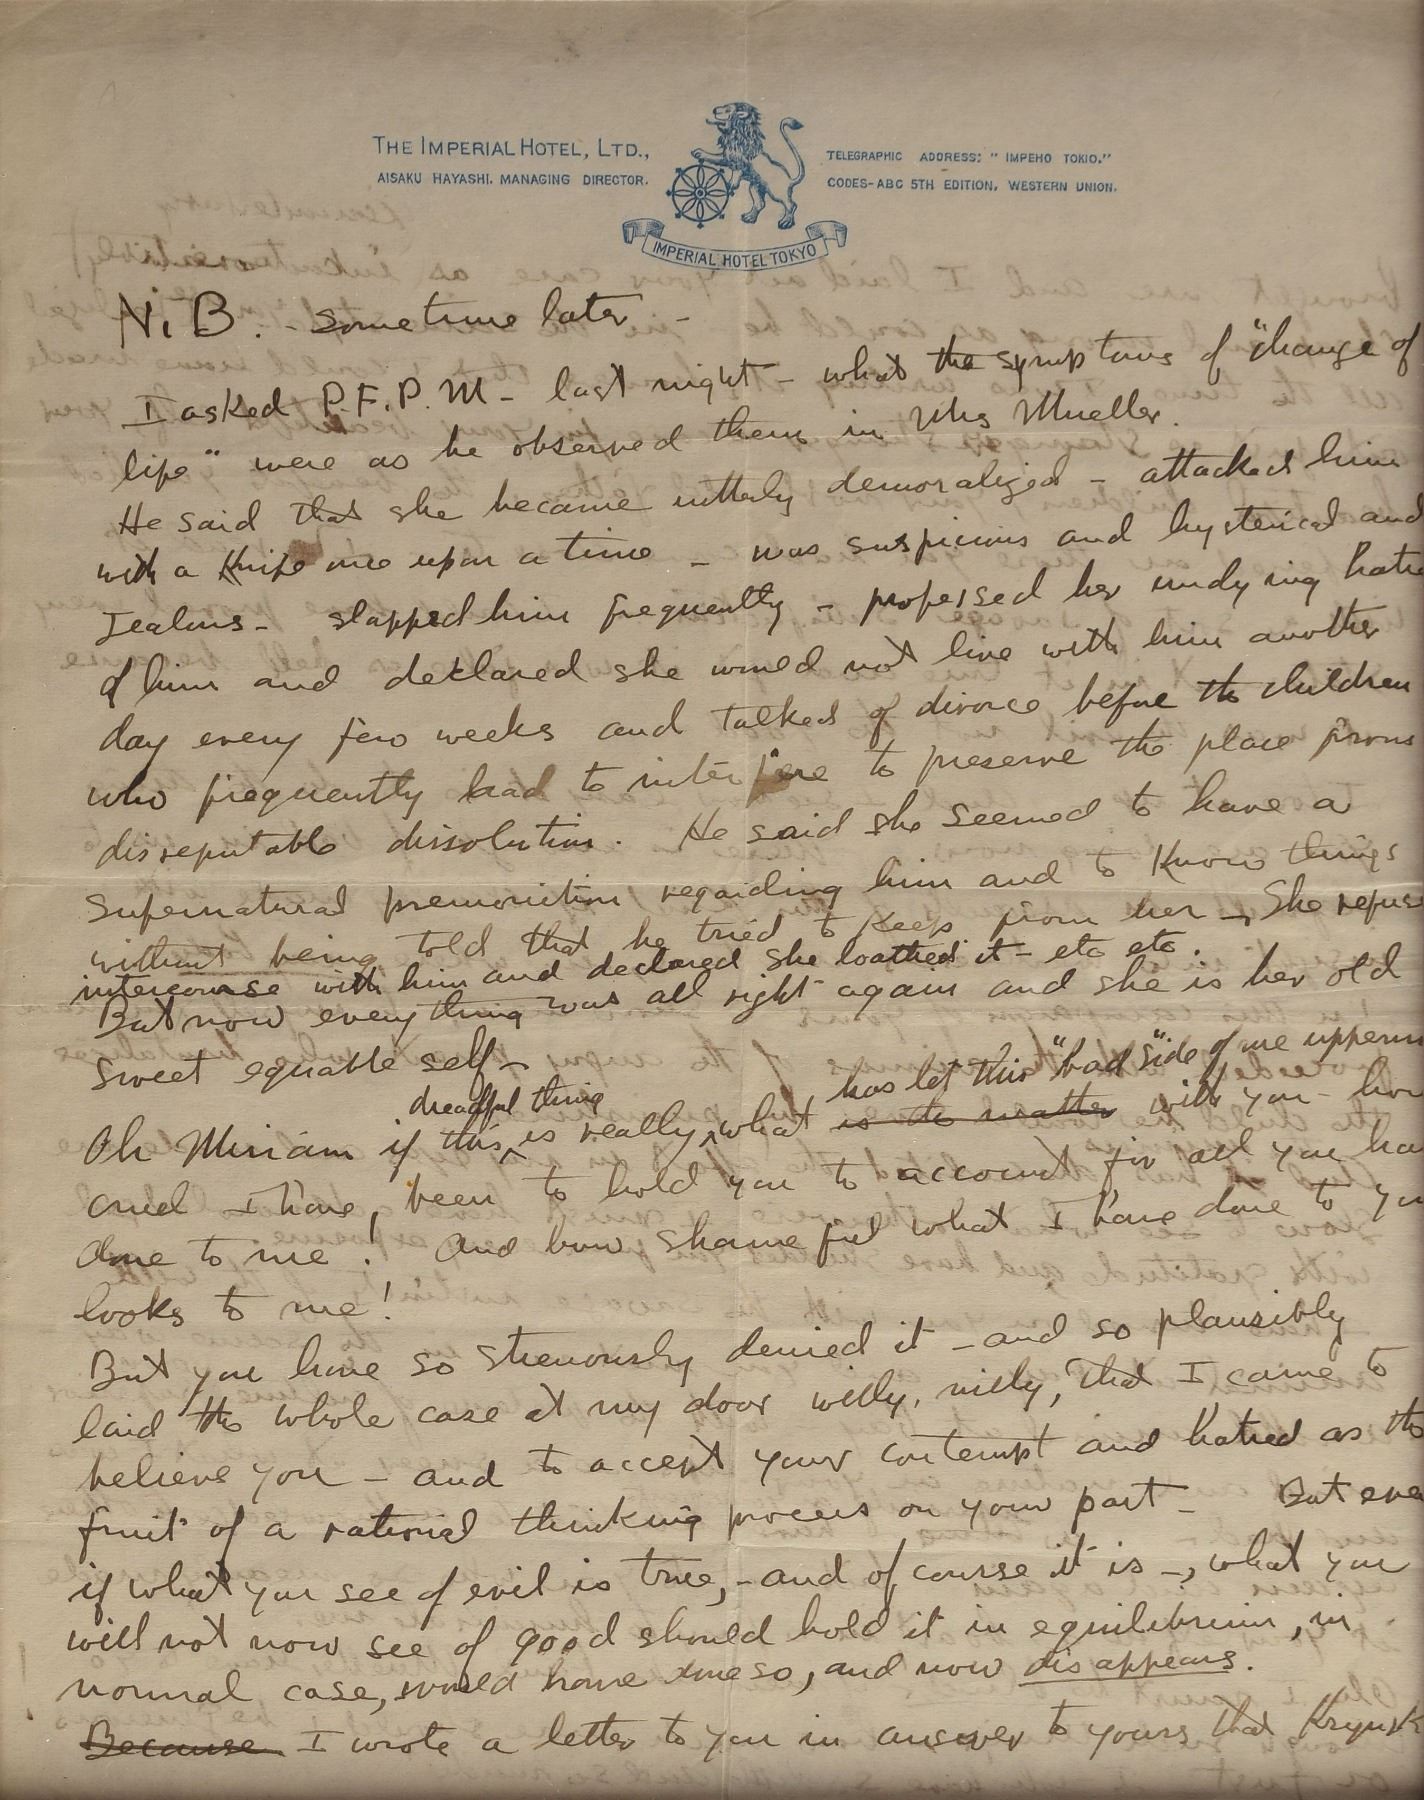 THE IMPERIAL HOTEL, LTD.,
AISAKU HAYASHI. MANAGING DIRECTOR.
TELEGRAPHIC ADDRESS: "IMPEHO TOKIO."
CODES-ABC 5TH EDITION, WESTERN UNION.
IMPERIAL HOTEL TOKYO
N.B. - Sometime later -
I asked P.F.P.M - last night - what the symptoms of "change of
life" were as he observed them in Mrs Mueller.
He said that she became utterly demoralized - attacked him
with a knife once upon a time - was suspicious and hysterical and
Jealous - slapped him frequently - professed her undying hatre
of him and declared she would not live with him another
day every few weeks and talked of divorce before the children
who frequently had to interfere to preserve the place from
disreputable dissolution. He said she seemed to have a
supernatural premonition regarding him and to know things
without being told that he tried to keep from her - She refus
intercourse with him and declared she loathed it - etc etc.
But now everything was all right again and she is her old
sweet equable self -
dreadful thing has let this "bad" side of me upperm
Oh Miriam if this is really what is the matter with you - how
cruel I have, been to hold you to account for all you hav
done to me! And how shameful what I have done to you
looks to me!
But you have so strenuously denied it - and so plausibly
laid the whole case at my door willy, nilly, that I came to
believe you - and to accept your contempt and hatred as the
fruit of a rational thinking process on your part - But even
if what you see of evil is true, - and of course it is -, what you
will not now see of good should hold it in equilibrium, in
normal case, would have done so, and now disappears.
Because I wrote a letter to you in answer to yours that Krynsk